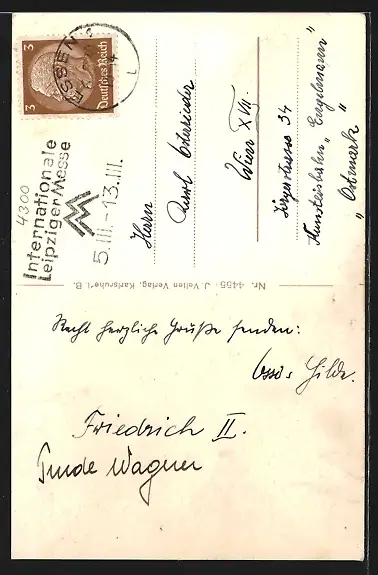 3 3
Deutsches Reich
ESSEN
Internationale
Leipziger Messe
5.III.-13.III.
4300
Herrn
Wien XVII.
34
"Engelmann"
"Ostmark"
Nr. 4455 · J. Velten Verlag, Karlsruhe i. B.
Recht herzliche Grüße senden:
Hilde.
Friedrich II.
Wagner